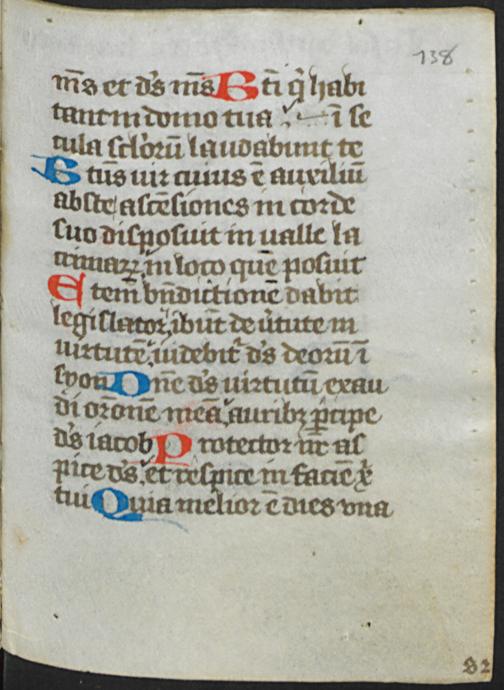 138
m̄s et d̄s m̄s B ti q̄ habi
tant in domo tua : ī se
cula sc̄lorū laudabunt te
B tus uir cuius ē auxiliū
abs te ascēsiones in corde
suo disposuit in ualle la
crimaꝝ in loco quē posuit
E tem̄ bn̄dictionē dabit
legislator ibūt de ūtute in
uirtutē, uidebit᷑ d̄s deorū ī
syon D n̄e d̄s uirtutū exau
di or̄onē meā auribꝫ ꝑcipe
d̄s iacob P rotector nr̄ as
pice d̄s, et respice in faciē xp̄
tui Q uia melior ē dies una